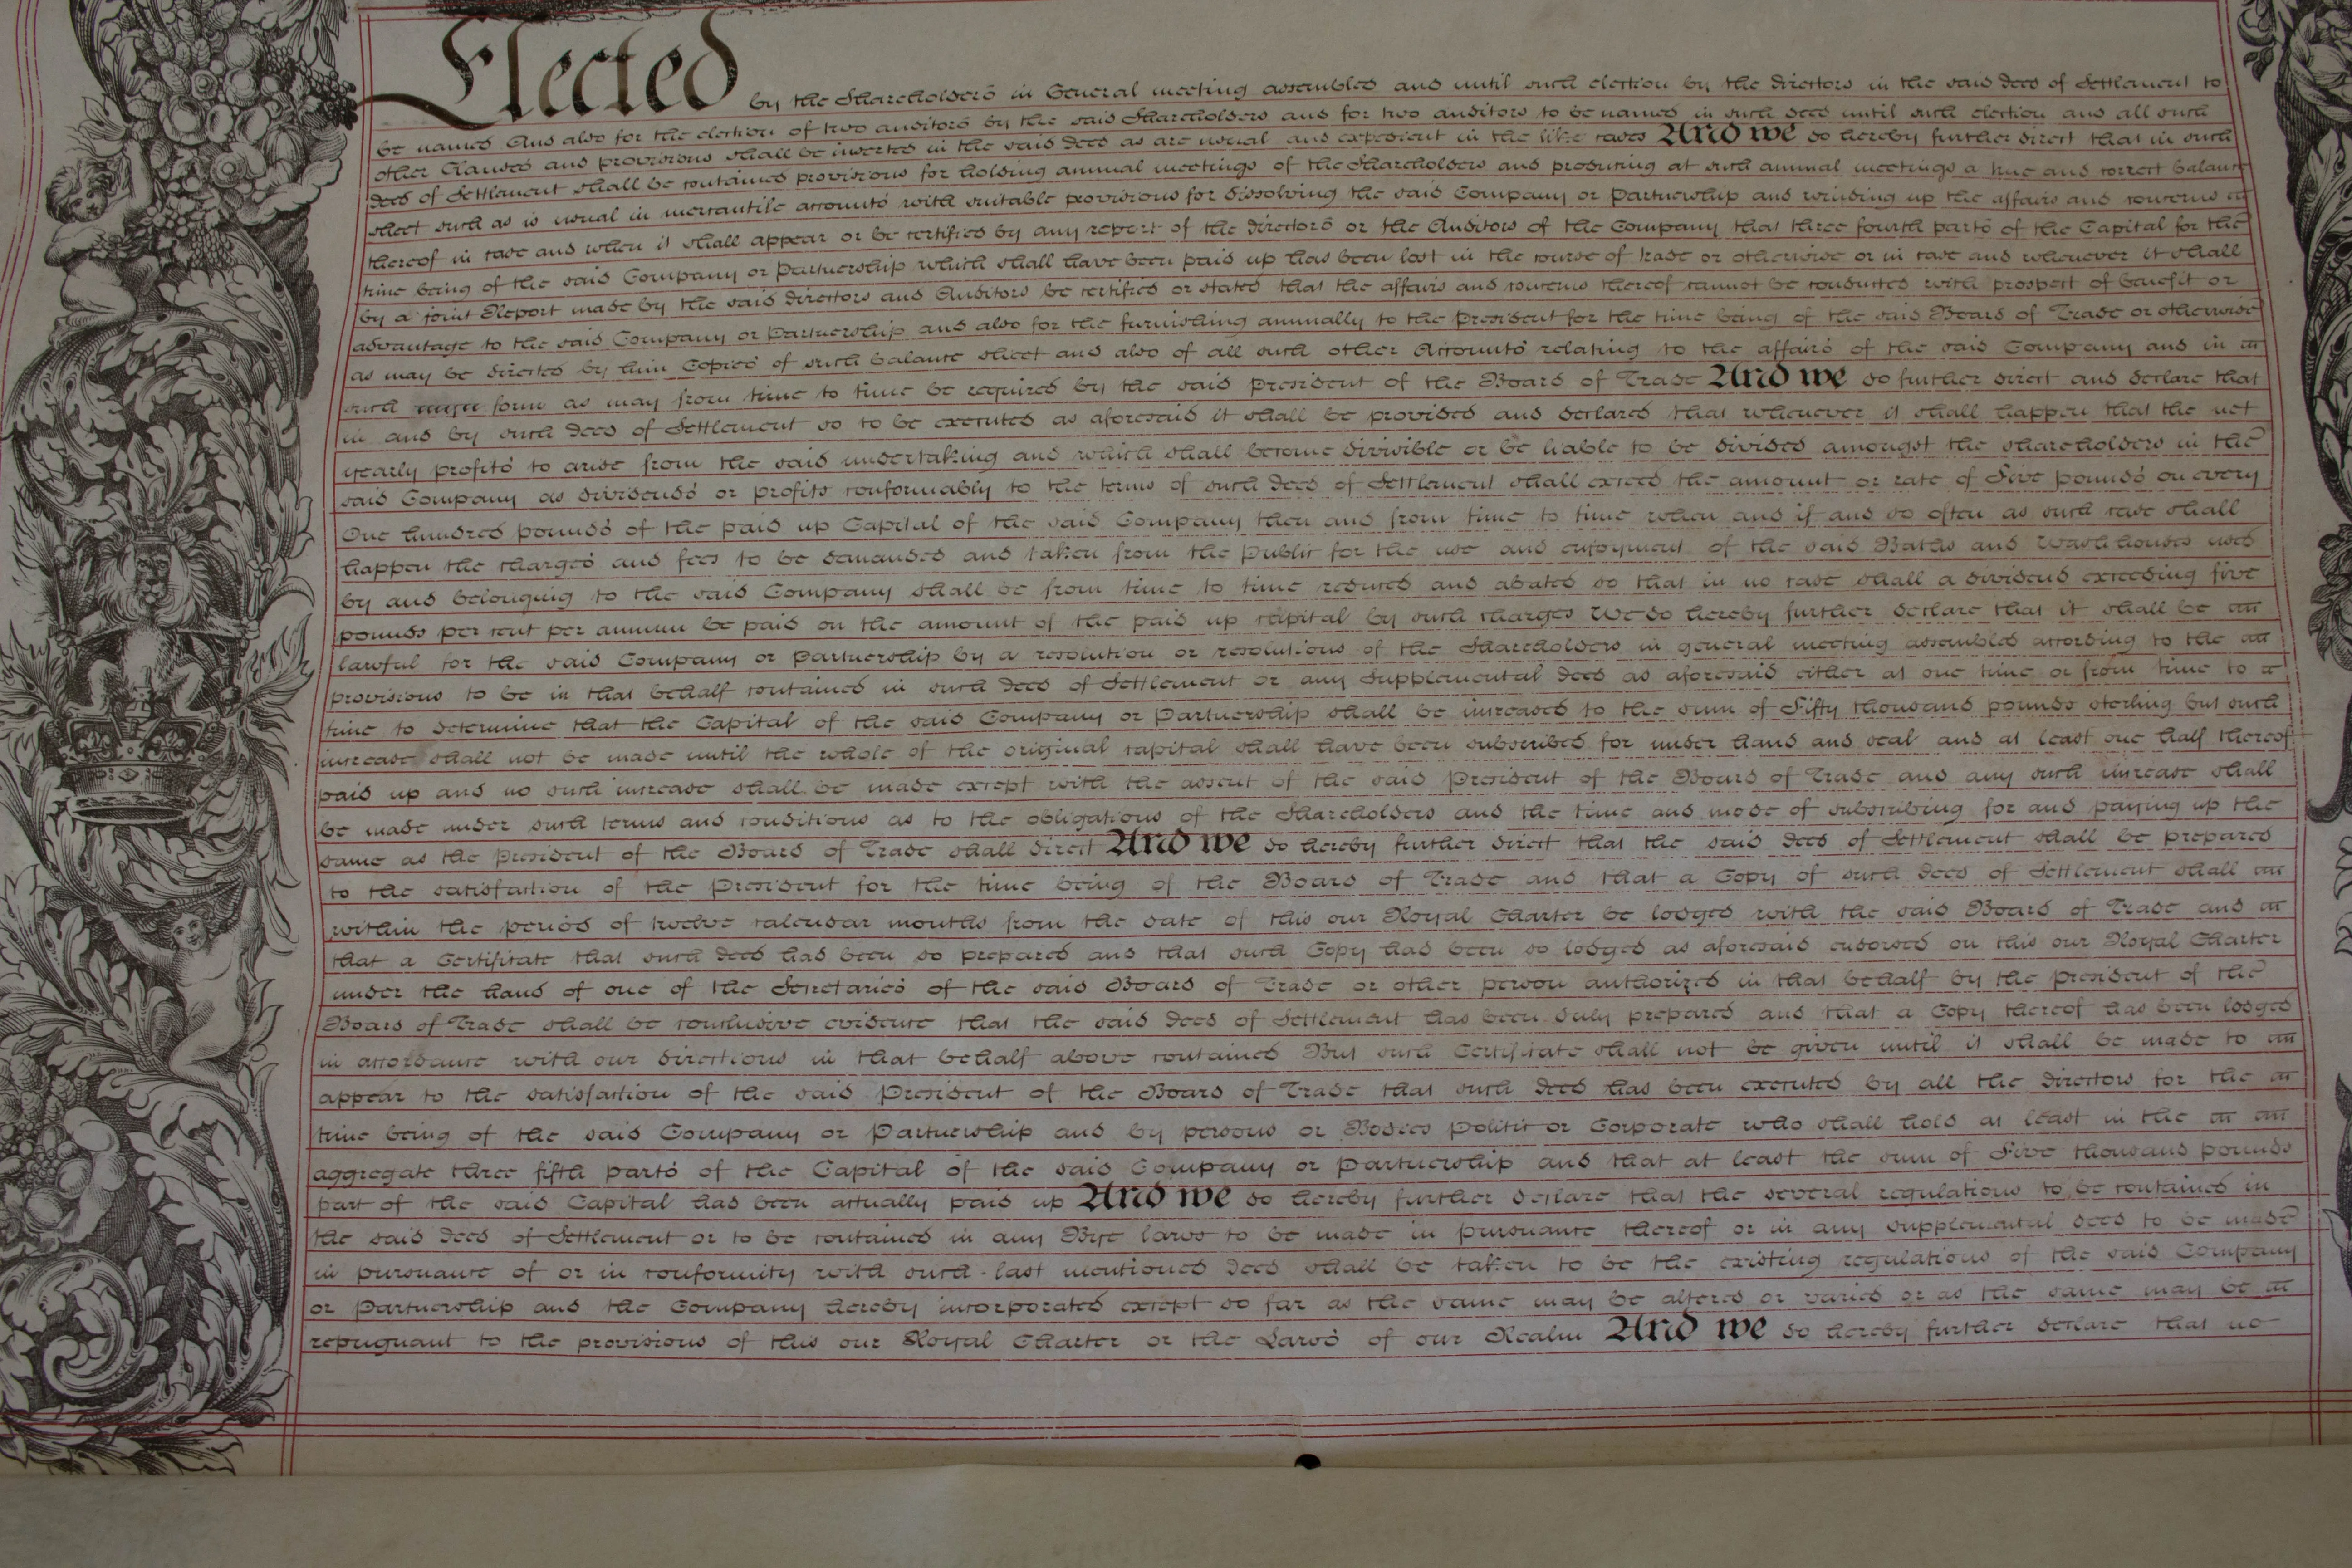 Elected by the Shareholders in General meeting assembled and until such election by the directors in the said deed of Settlement to
be named And also for the election of two auditors by the said Shareholders and for two auditors to be named in such deed until such election and all such
other Clauses and provisions shall be inserted in the said deed as are usual and expedient in the like cases And we do hereby further direct that in such
deed of Settlement shall be contained provisions for holding annual meetings of the Shareholders and producing at such annual meetings a true and correct balance
sheet such as is usual in mercantile accounts with suitable provisions for dissolving the said Company or Partnership and winding up the affairs and concerns
thereof in case and when it shall appear or be certified by any report of the directors or the Auditors of the Company that three fourth parts of the Capital for the
time being of the said Company or Partnership which shall have been paid up has been lost in the course of trade or otherwise or in case and whenever it shall
by a joint Report made by the said directors and Auditors be certified or stated that the affairs and concerns thereof cannot be conducted with prospect of benefit or
advantage to the said Company or Partnership and also for the furnishing annually to the President for the time being of the said Board of Trade or otherwise
as may be directed by him Copies of such balance sheet and also of all such other Accounts relating to the affairs of the said Company and in
such form as may from time to time be required by the said president of the Board of Trade And we do further direct and declare that
in and by such deed of Settlement so to be executed as aforesaid it shall be provided and declared that whenever it shall happen that the net
yearly profits to arise from the said undertaking and which shall become divisible or be liable to be divided amongst the shareholders in the
said Company as dividends or profits conformably to the terms of such deed of Settlement shall exceed the amount or rate of Five pounds on every
One hundred pounds of the paid up Capital of the said Company then and from time to time when and if and so often as such case shall
happen the charges and fees to be demanded and taken from the public for the use and enjoyment of the said Baths and Washhouses used
by and belonging to the said Company shall be from time to time reduced and abated so that in no case shall a dividend exceeding five
pounds per cent per annum be paid on the amount of the paid up capital by such charges We do hereby further declare that it shall be
lawful for the said Company or Partnership by a resolution or resolutions of the Shareholders in general meeting assembled according to the
provisions to be in that behalf contained in such deed of Settlement or any supplemental deed as aforesaid either at one time or from time to
time to determine that the Capital of the said Company or Partnership shall be increased to the sum of Fifty thousand pounds sterling but such
increase shall not be made until the whole of the original capital shall have been subscribed for under hand and seal and at least one half thereof
paid up and no such increase shall be made except with the assent of the said President of the Board of Trade and any such increase shall
be made under such terms and conditions as to the obligations of the Shareholders and the time and mode of subscribing for and paying up the
same as the president of the Board of Trade shall direct And we do hereby further direct that the said deed of Settlement shall be prepared
to the satisfaction of the President for the time being of the Board of Trade and that a Copy of such deed of Settlement shall
within the period of twelve calendar months from the date of this our Royal Charter be lodged with the said Board of Trade and
that a Certificate that such deed has been so prepared and that such Copy has been so lodged as aforesaid endorsed on this our Royal Charter
under the hand of one of the Secretaries of the said Board of Trade or other person authorized in that behalf by the president of the
Board of Trade shall be conclusive evidence that the said deed of Settlement has been duly prepared and that a Copy thereof has been lodged
in accordance with our directions in that behalf above contained But such Certificate shall not be given until it shall be made to
appear to the satisfaction of the said President of the Board of Trade that such deed has been executed by all the directors for the
time being of the said Company or Partnership and by persons or Bodies Politic or Corporate who shall hold at least in the
aggregate three fifth parts of the Capital of the said Company or Partnership and that at least the sum of Five thousand pounds
part of the said Capital has been actually paid up And we do hereby further declare that the several regulations to be contained in
the said deed of Settlement or to be contained in any Bye laws to be made in pursuance thereof or in any supplemental deed to be made
in pursuance of or in conformity with such last mentioned deed shall be taken to be the existing regulations of the said Company
or Partnership and the Company hereby incorporated except so far as the same may be altered or varied or as the same may be
repugnant to the provisions of this our Royal Charter or the Laws of our Realm And we do hereby further declare that no